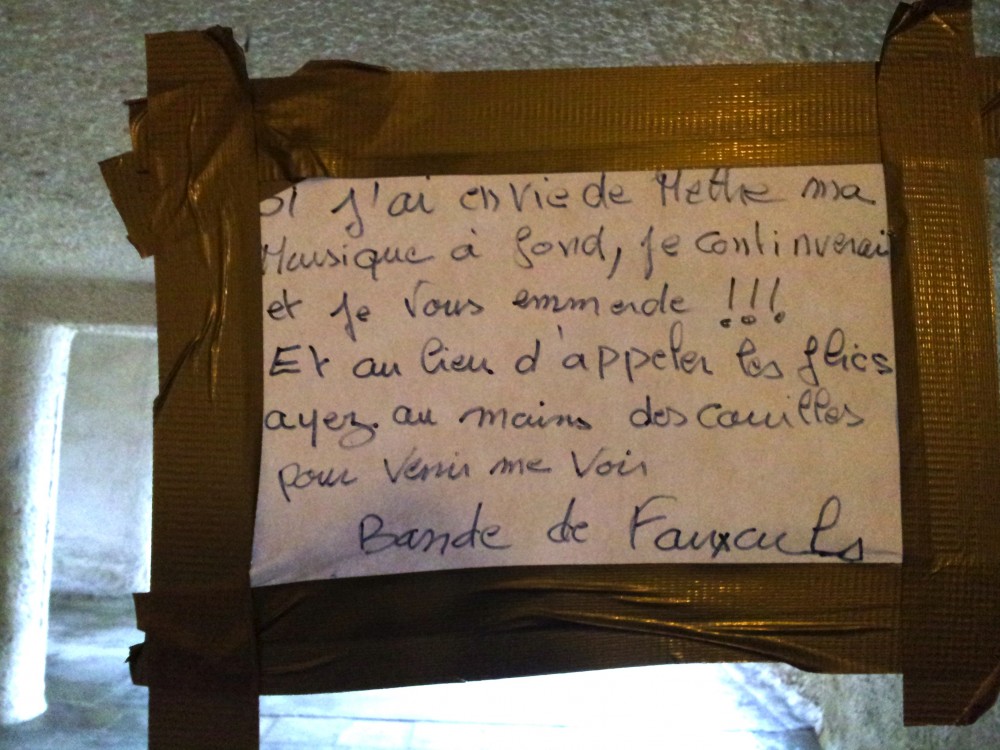 Si j'ai envie de Mettre ma
Musique à fond, je continuerai
et je vous emmerde !!!
Et au lieu d'appeler les flics
ayez au moins des couilles
pour venir me voir
Bande de Fauxculs